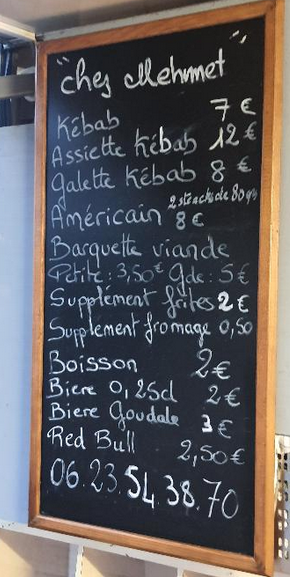 "chez Mehmet"
Kébab 7 €
Assiette Kébab 12 €
Galette Kébab 8 €
Américain 2 steacks de 80 grs 8 €
Barquette viande
Petite : 3,50€ Gde : 5€
Supplément frites 2€
Supplément fromage 0,50
Boisson 2€
Biere 0,25cl 2€
Biere Goudale 3€
Red Bull 2,50€
06.23.54.38.70